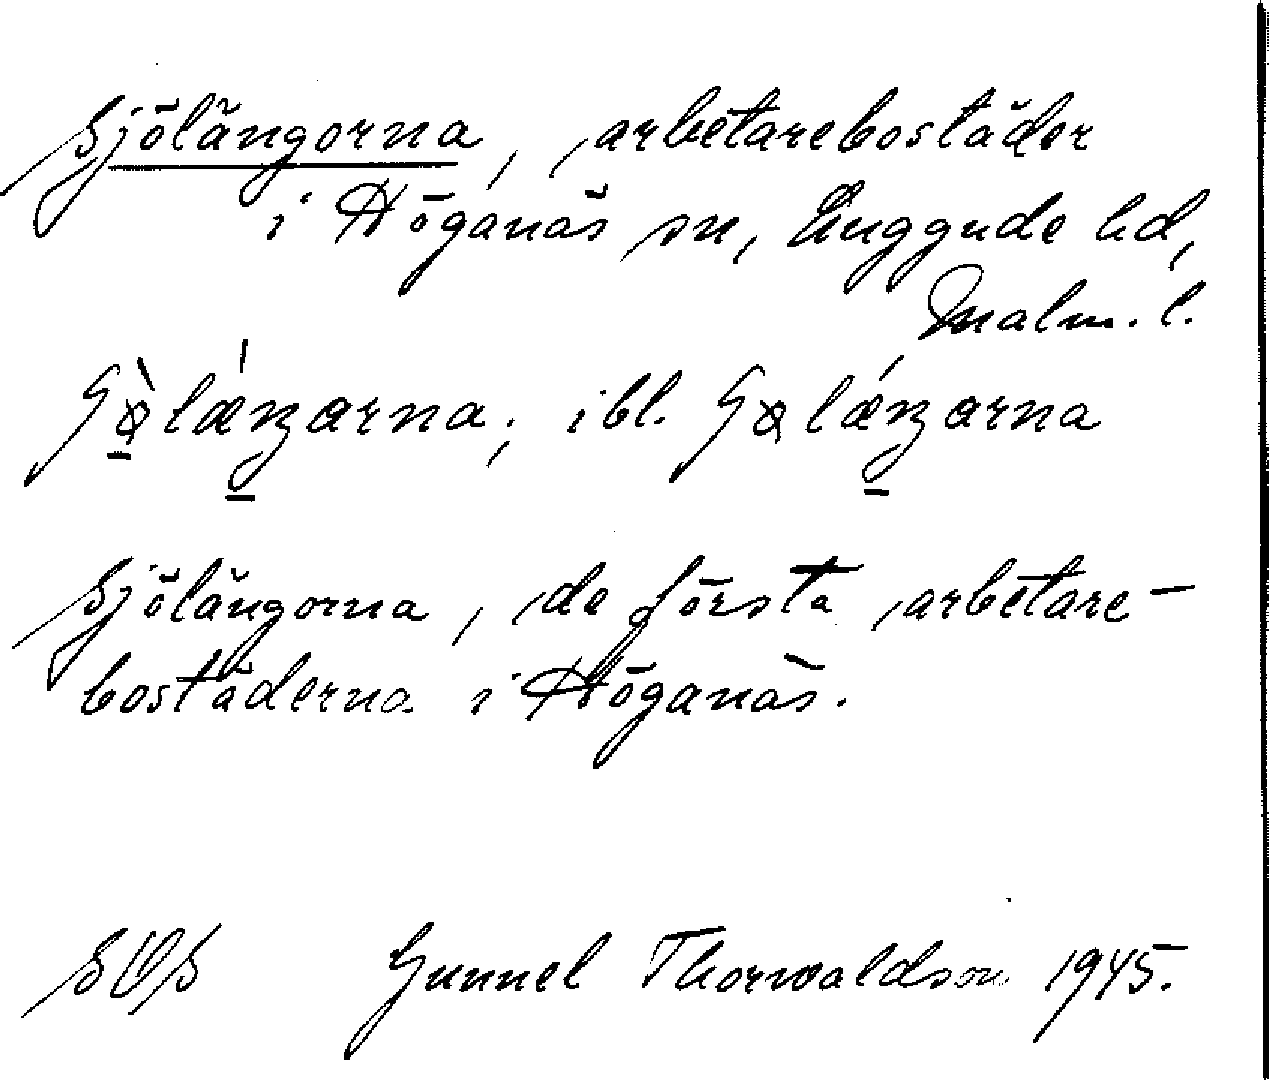 Sjölängorna, arbetarebostäder
i Höganäs sn, Luggude hd,
Malm. l.
ibl.
Sjölängorna, de första arbetare-
bostäderna i Höganäs.
SOS Gunnel Thorwaldson 1945.